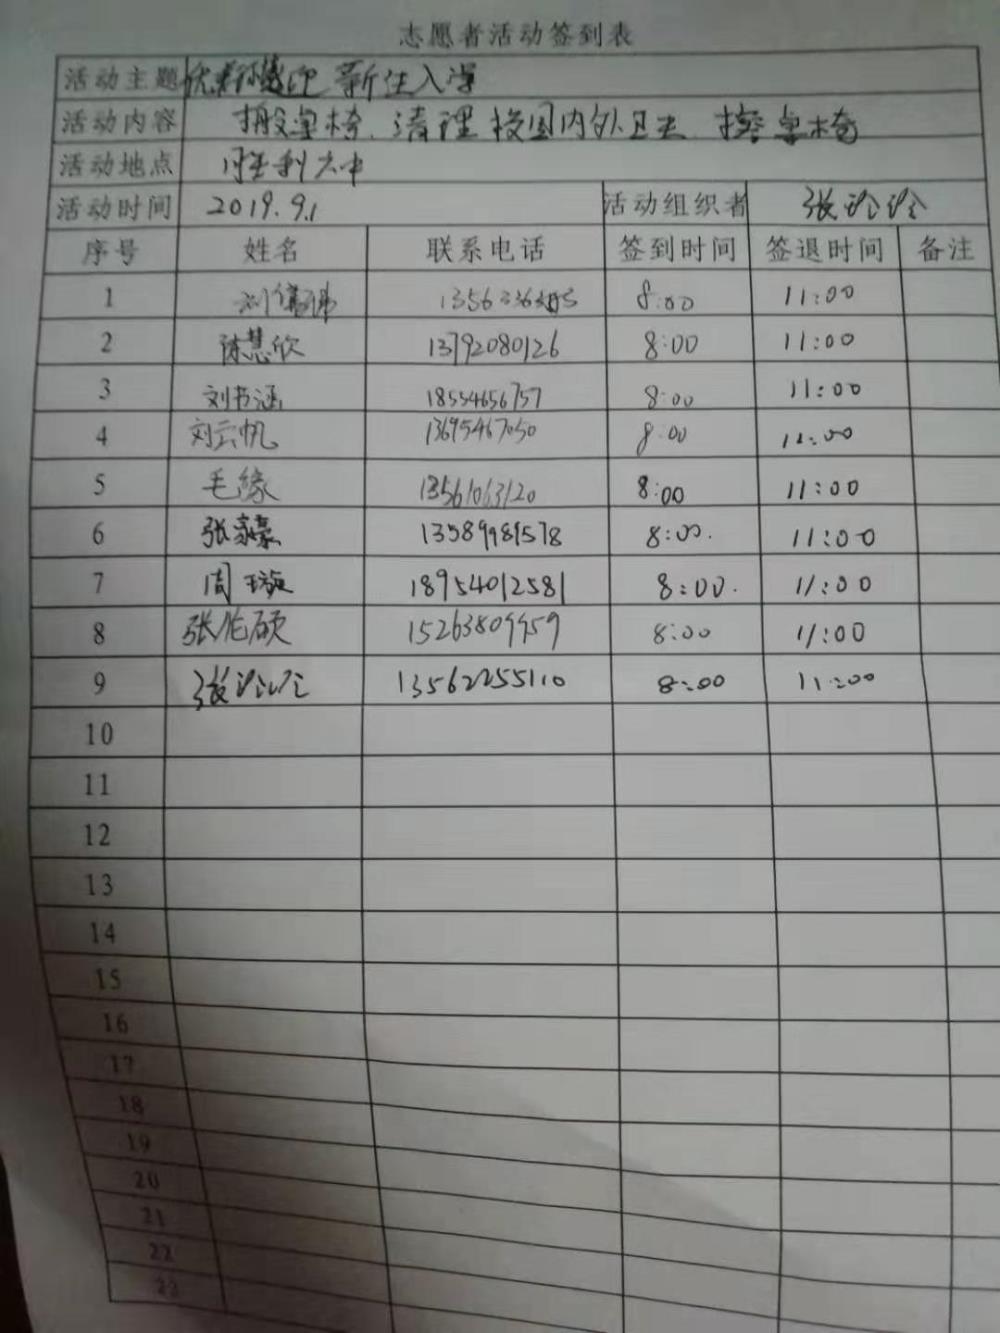 志愿者活动签到表
活动主题 迎新生入学
活动内容 搬桌椅、清理校园内外卫生、擦桌椅
活动地点 胜利六中
活动时间 2019.9.1 活动组织者 张
序号 姓名 联系电话 签到时间 签退时间 备注
1 刘 8:00 11:00
2 陈慧欣 13792080126 8:00 11:00
3 刘书涵 18554656757 8:00 11:00
4 刘云帆 13695467050 8:00 11:00
5 毛缘 13561063120 8:00 11:00
6 张豪 13589981578 8:00. 11:00
7 周璇 18954012581 8:00. 11:00
8 张伦硕 15263809959 8:00 11:00
9 张 13562255110 8:00 11:00
10
11
12
13
14
15
16
17
18
19
20
21
22
23